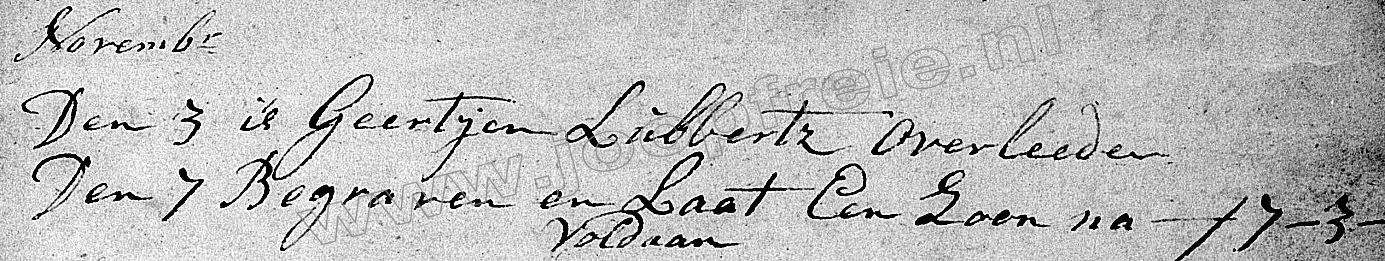 Novembr
Den 3 is Geertjen Lubbertz overleeden
Den 7 Begraven en Laat Een Zoon na — f 7-3-
Voldaan